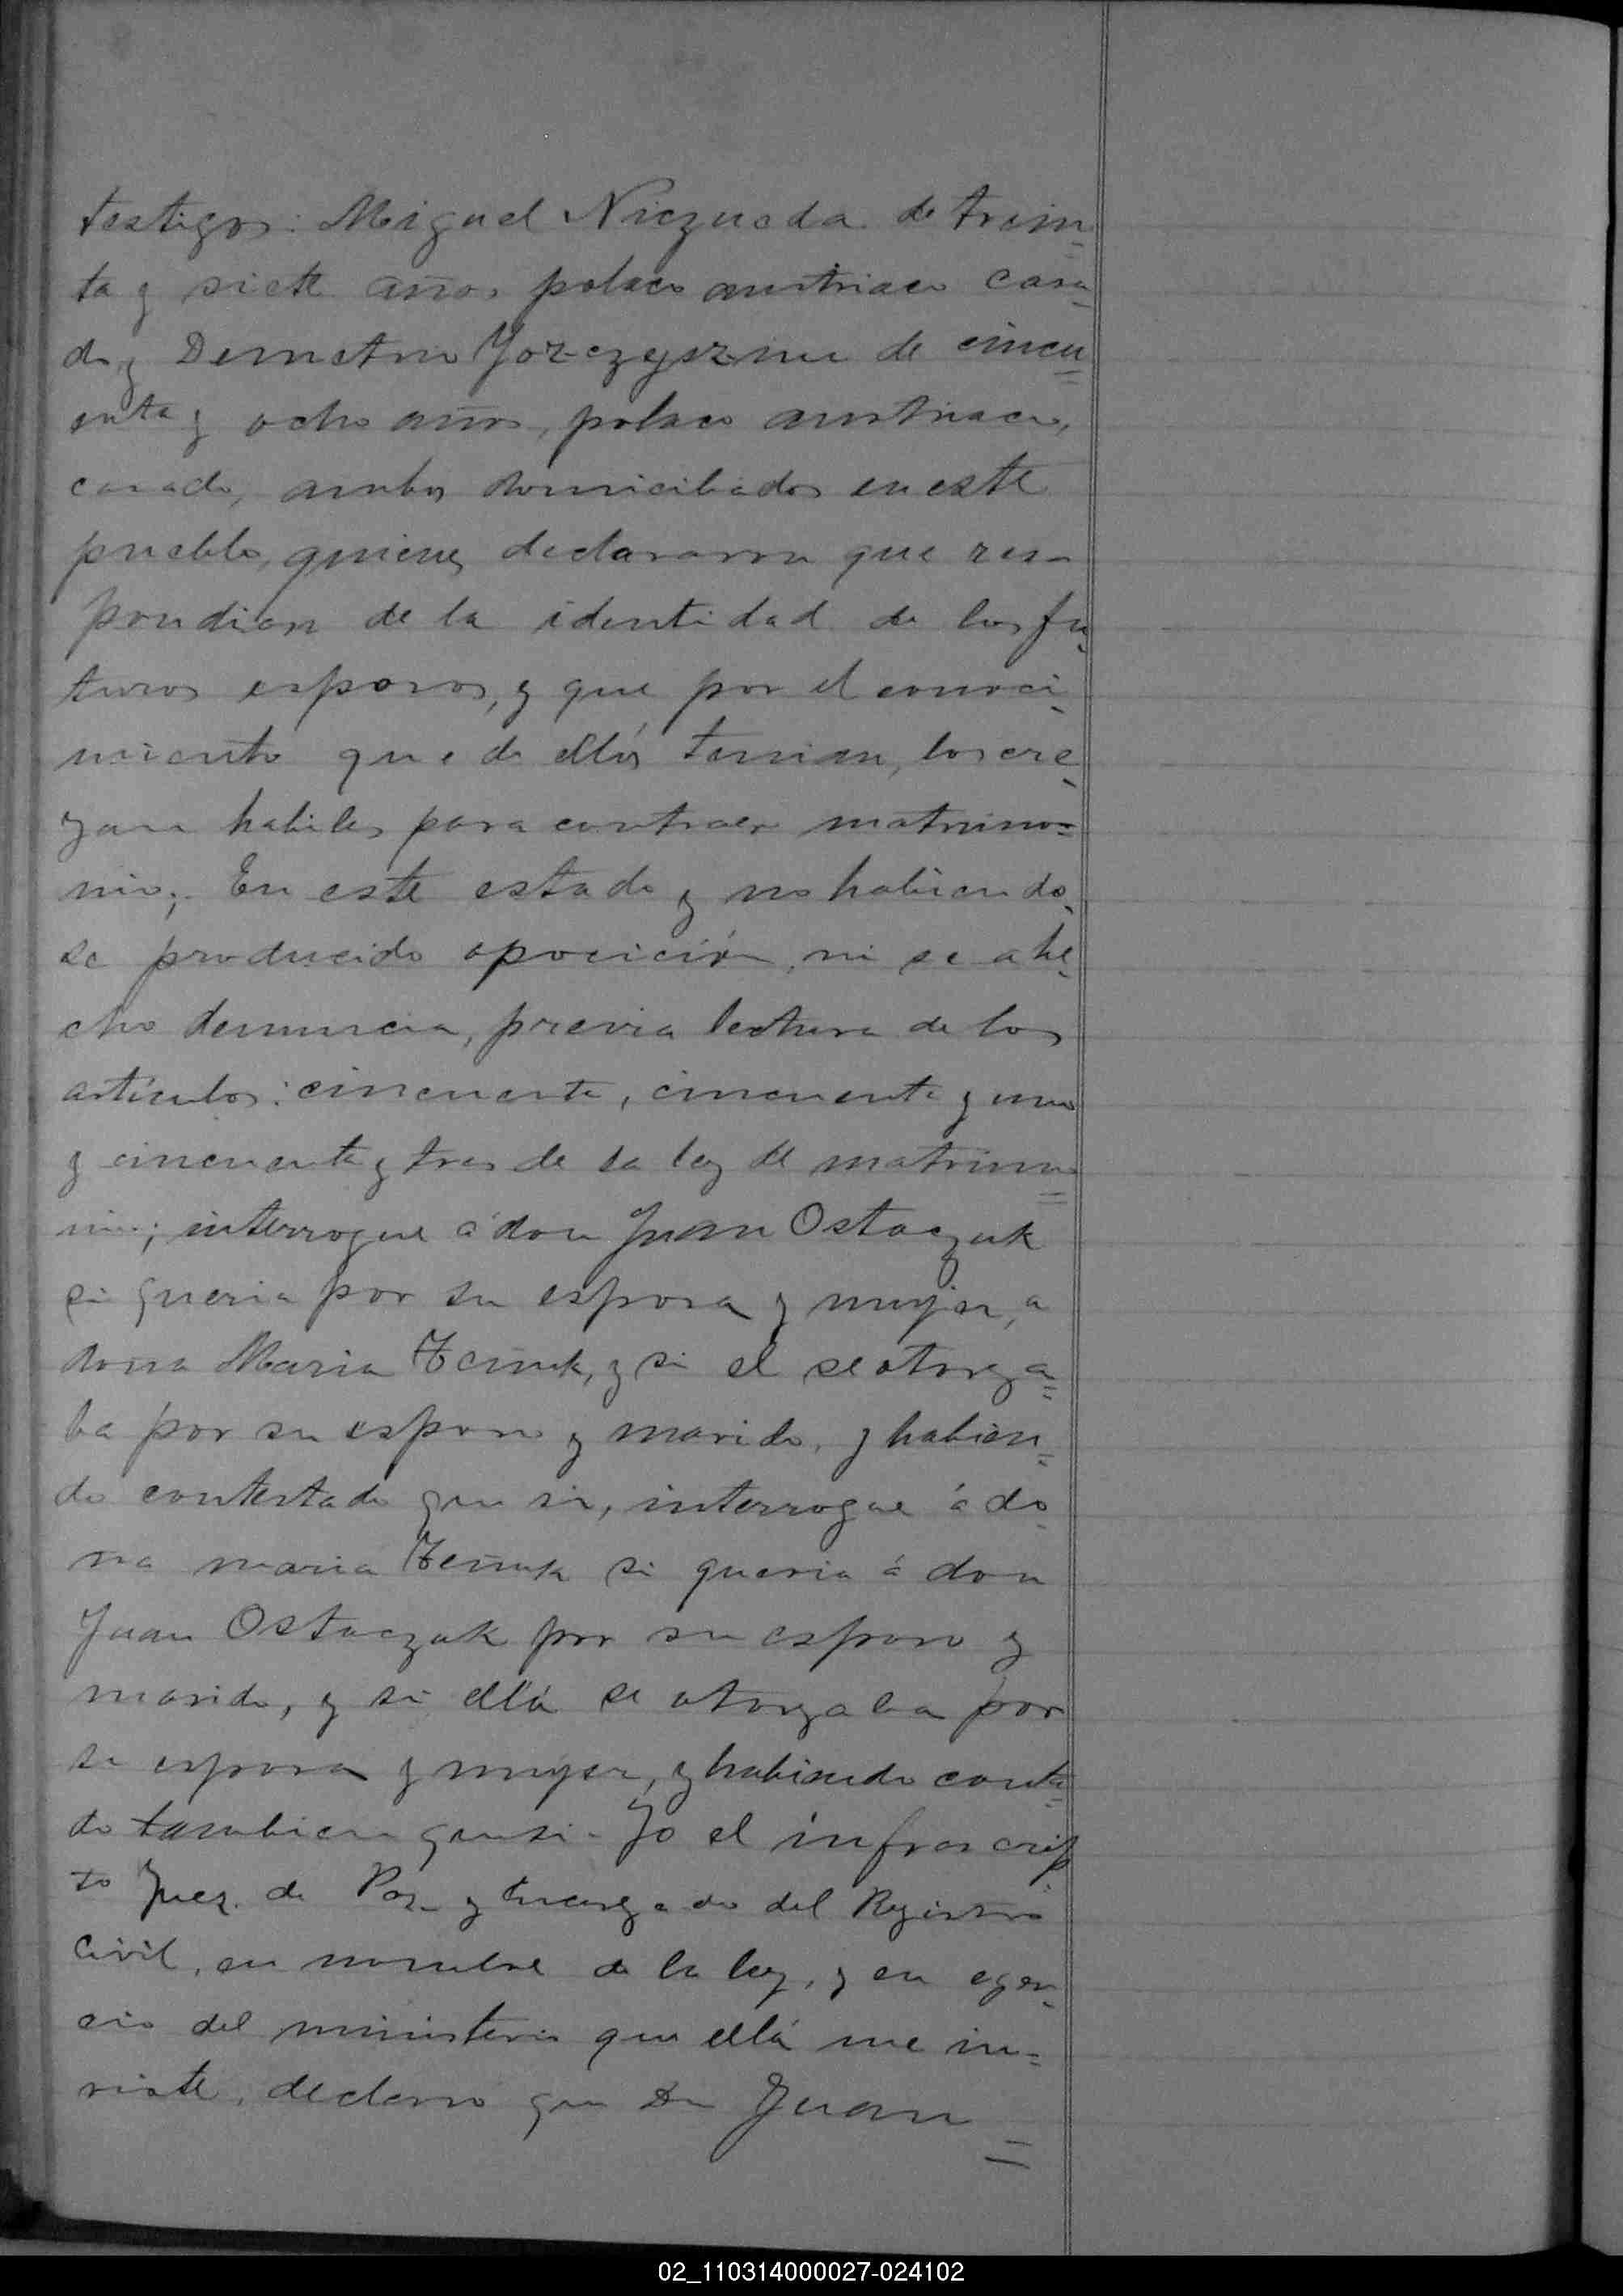 testigos: Miguel Niezueda de trein=
ta y siete años polaco austriaco casa=
do, y Demetrio de cincu=
enta y ocho años, polaco austriaco,
casado, ambos domiciliados en este
pueblo, quienes declararon que res-
pondian de la identidad de los fu-
turos esposos, y que por el conoci-
miento que de ellos tenian, los cre-
yan habiles para contraer matrimo=
nio; En este estado y no habiendo-
se producido oposición, ni se a he-
cho denuncia, previa lectura de los
artículos: cincuenta, cincuenta y uno
y cincuenta y tres de la ley de matrimo=
nio; interrogue á don Juan Ostaczuk
si queria por su esposa y mujer, a
dona Maria y si el se otorga=
ba por su esposo y marido, y habien=
do contestado que si, interrogue á do-
na maria si queria á don
Juan Ostaczuk por su esposo y
marido, y si ella se otorgaba por
su esposa y mujer, y habiendo conta=
do tambien que si - Yo el infrascrip
to Juez de Paz y Encargado del Registro
Civil, en nombre de la ley, y en eger-
cio del ministerio que ella me in=
viste, declaro que Dn Juan =
02_110314000027-024102